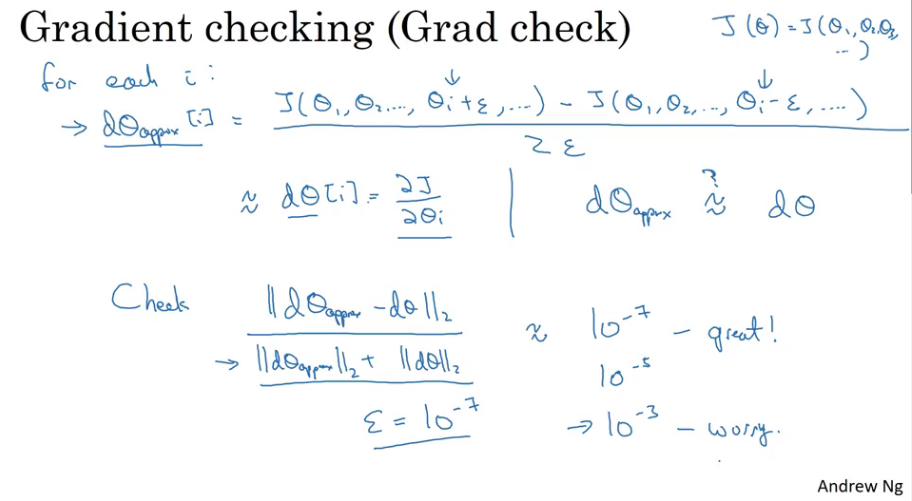 Gradient checking (Grad check)
J(θ) = J(θ₁, θ₂, θ₃, ...)
for each i:
→ dθapprox[i] = J(θ₁, θ₂, ..., θᵢ+ε, ...) - J(θ₁, θ₂, ..., θᵢ-ε, ....)
2ε
≈ dθ[i] = ∂J/∂θᵢ | dθapprox ≈? dθ
Check ||dθapprox - dθ||₂
→ ||dθapprox||₂ + ||dθ||₂
≈ 10⁻⁷ - great!
10⁻⁵
ε = 10⁻⁷
→ 10⁻³ - worry.
Andrew Ng